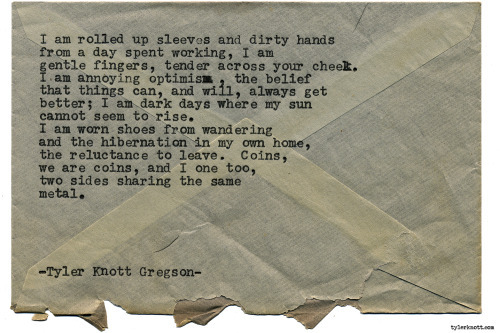 I am rolled up sleeves and dirty hands
from a day spent working, I am
gentle fingers, tender across your cheek.
I am annoying optimism , the belief
that things can, and will, always get
better; I am dark days where my sun
cannot seem to rise.
I am worn shoes from wandering
and the hibernation in my own home,
the reluctance to leave.  Coins,
we are coins, and I one too,
two sides sharing the same
metal.
-Tyler Knott Gregson-
tylerknott.com